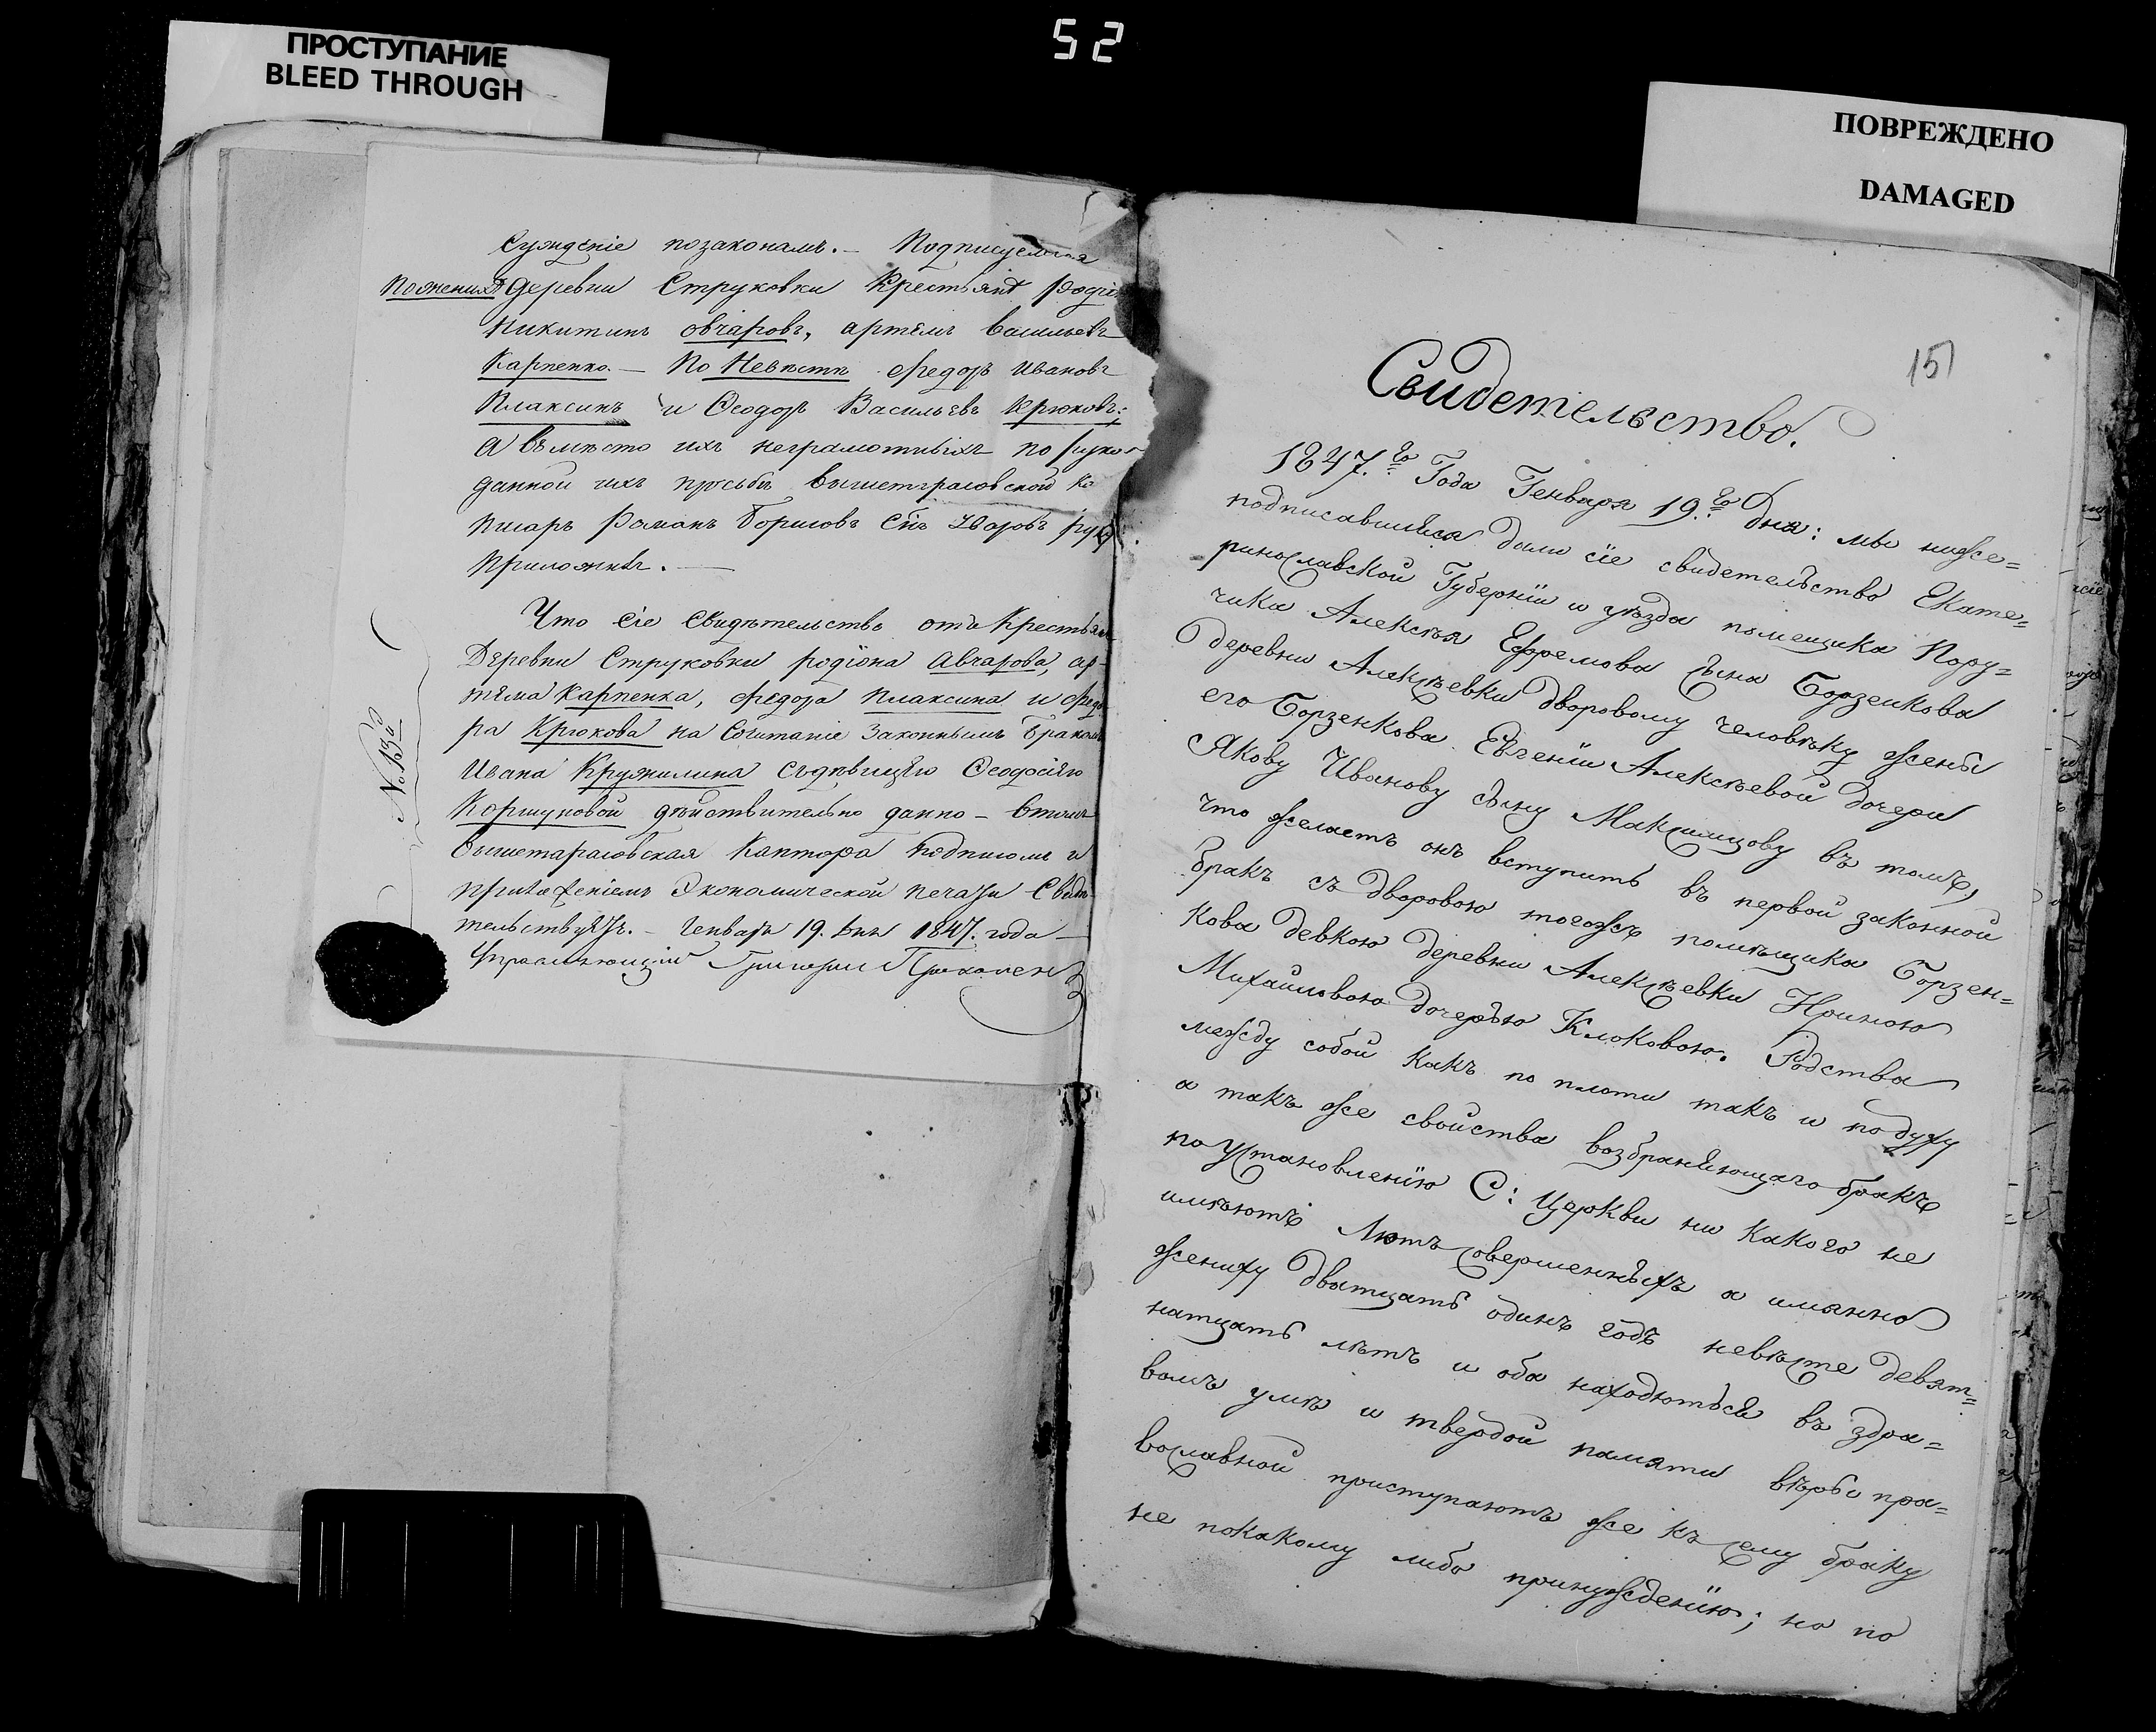 52
ПРОСТУПАНИЕ
BLEED THROUGH
ПОВРЕЖДЕНО
DAMAGED
Сужденіе позаконамъ. — Подписуемся
Пожениха деревни Струковки Крестьянѣ Родіо
Никитинъ овчаровъ, артемъ Васильевъ
Карпенко. — По Невѣстѣ Федоръ Ивановъ
Плаксинъ и Ѳеодоръ Васильевъ Крюковъ;
а вмѣсто ихъ неграмотныхъ по руко
данной ихъ прозьбѣ Вышетарасовской Ко
писарь Романъ Борисовъ Сынъ Уваровъ руку
приложилъ. —
Что сіе Свидѣтельство отъ Крестьян
Деревни Струковки родіона Авчарова, ар-
тема Карпенка, Федора Плаксина и Федо
ра Крюкова на Сочитаніе Законнымъ Бракомъ
Ивана Кружилина съдѣвицею Ѳеодосіею
Коршуновой дѣйствительно данно — Втомъ
Вышетарасовская Кантора подписомъ и
приложеніемъ Экономической печати Свидѣ-
тельствуетъ. — Генваря 19. дня 1847. года —
Управляющій Григорій
151
Свидетельство.
1847.го Года Генваря 19.го Дня: мы ниже=
подписавшіися дали сіе свидетельство Екате=
ринославской Губерніи и уѣзда помещика Пору=
чика Алексѣя Ефремова сына Борзенкова
деревни Алексѣевки дворовому человѣку жены
его Борзенкова Евгеніи Алексѣевой дочери
Якову Иванову сыну Максимцову въ томъ,
что желаетъ онъ вступить въ первой законной
бракъ съ дворовою тогожъ помѣщика Борзен=
кова девкою деревни Алексѣевки Ириною
Михайловою дочерью Клоковою. Родства
между собой какъ по плоти такъ и по духу
а такъ же свойства возбраняющаго бракъ
по установленію С: Церкви ни какого не
имѣютъ Лѣтъ совершенныхъ а имянно
жениху дватцать одинъ годъ невѣсте девят=
натцать лѣтъ и оба находються въ здра=
вомъ умѣ и твердой памяти вѣры пра=
вославной приступаютъ же къ сему браку
не покакому либо принужденію; но по